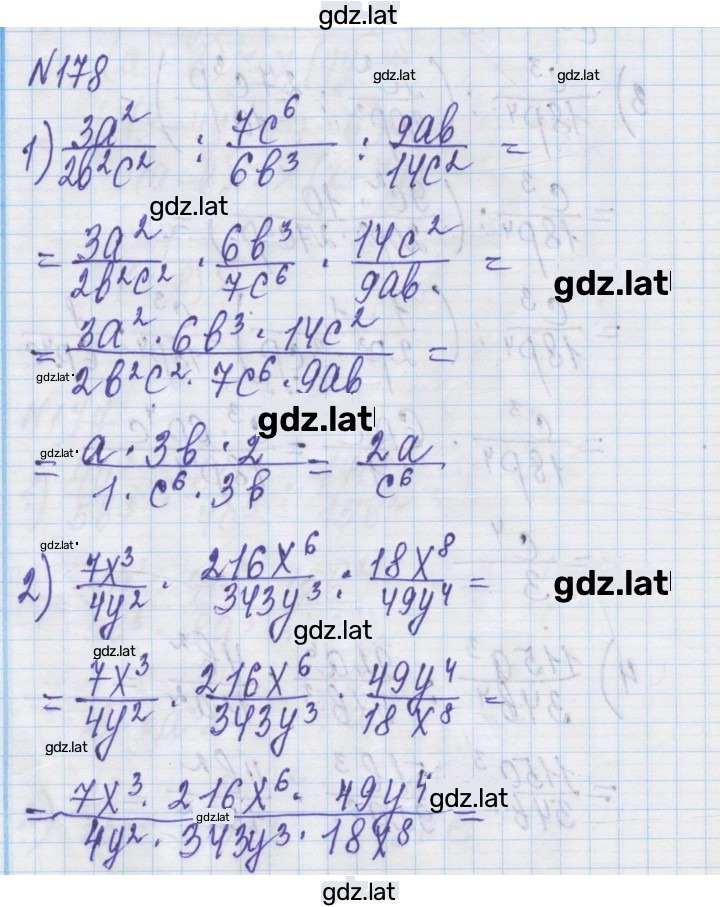 gdz.lat
N178
gdz.lat gdz.lat
1) 3a²/2b²c² : 7c⁶/6b³ : 9ab/14c² =
gdz.lat
= 3a²/2b²c² · 6b³/7c⁶ · 14c²/9ab =
gdz.lat
= 3a² · 6b³ · 14c²/2b²c² · 7c⁶ · 9ab =
gdz.lat
gdz.lat
gdz.lat
= a · 3b · 2/1 · c⁶ · 3b = 2a/c⁶
gdz.lat
2) 7x³/4y² · 216x⁶/343y³ : 18x⁸/49y⁴ =
gdz.lat
gdz.lat
gdz.lat
= 7x³/4y² · 216x⁶/343y³ : 49y⁴/18x⁸ =
gdz.lat
= 7x³ · 216x⁶ · 49y⁴/4y² · 343y³ · 18x⁸ =
gdz.lat
gdz.lat
gdz.lat